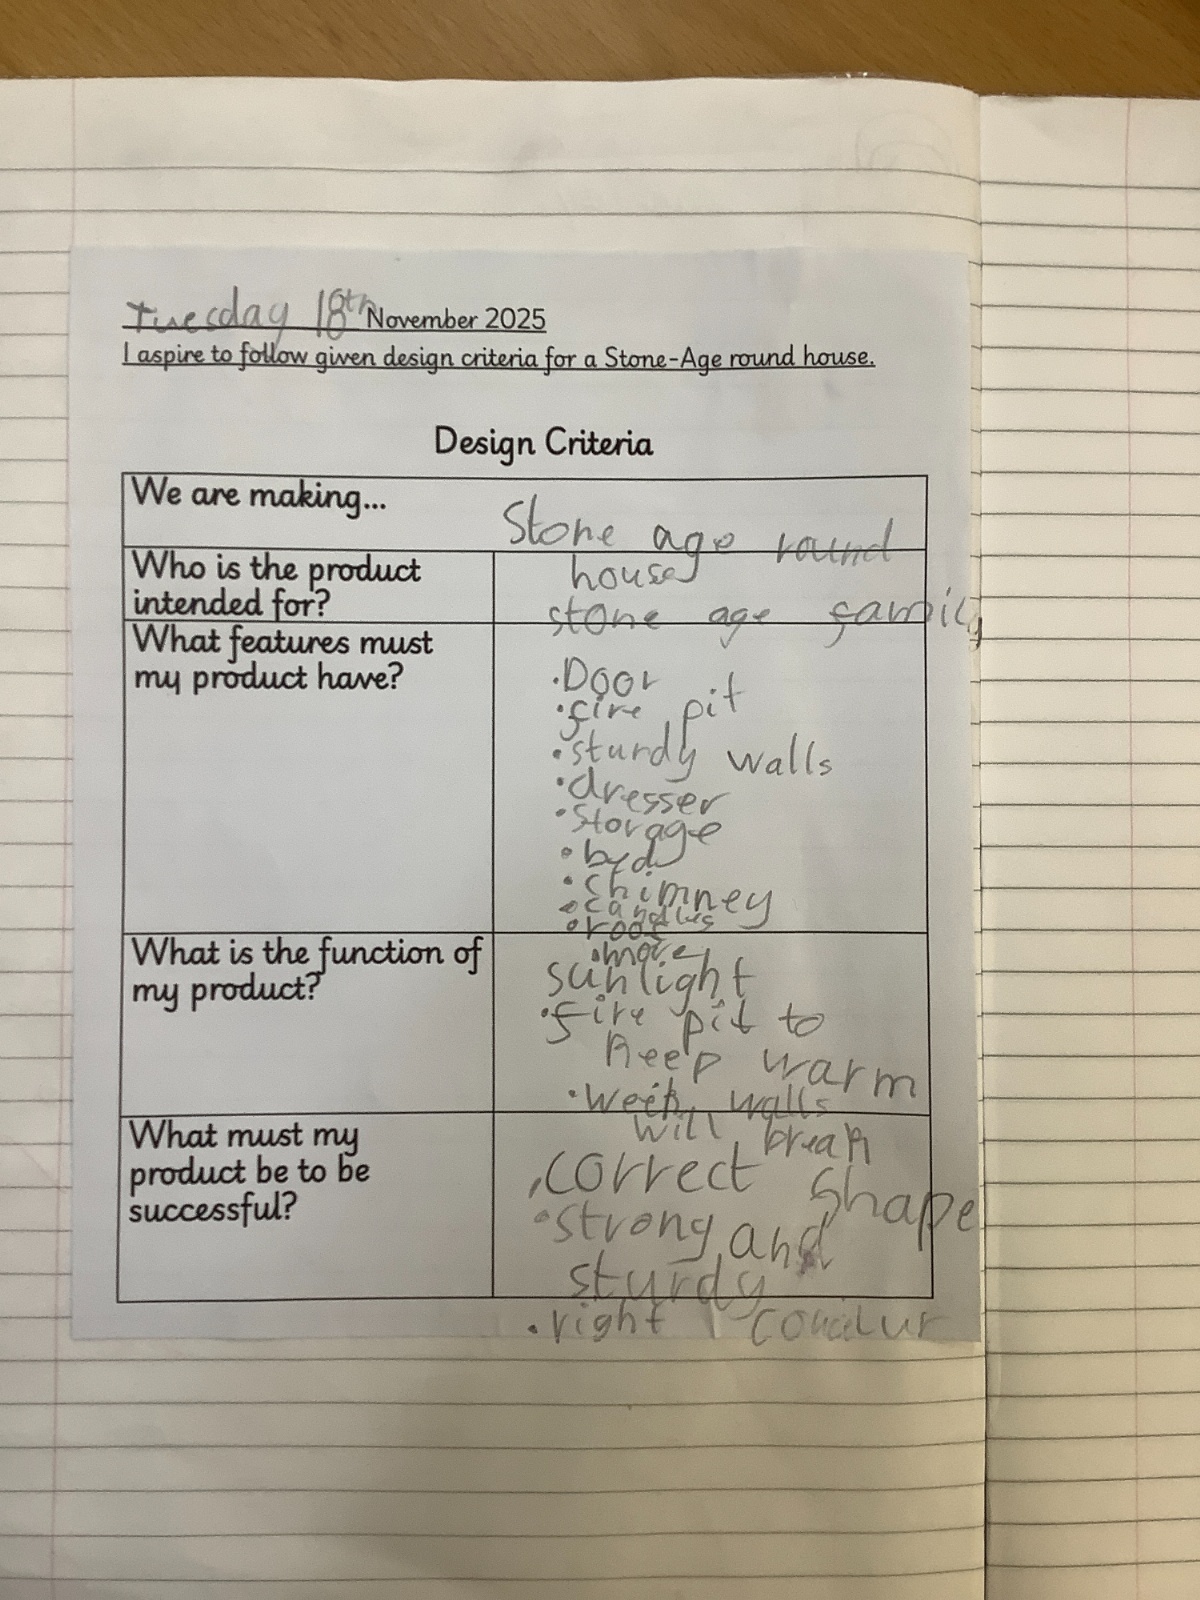 Tuesday 18th November 2025
I aspire to follow given design criteria for a Stone-Age round house.
Design Criteria
We are making...
Stone age round
house
Who is the product
intended for?
stone age family
What features must
my product have?
·Door
·fire pit
·sturdy walls
·dresser
·Storage
·bed
·chimney
·candles
·roof
What is the function of
my product?
·more
sunlight
·fire pit to
keep warm
·week walls
will break
What must my
product be to be
successful?
·correct shape
·strong and
sturdy
·right